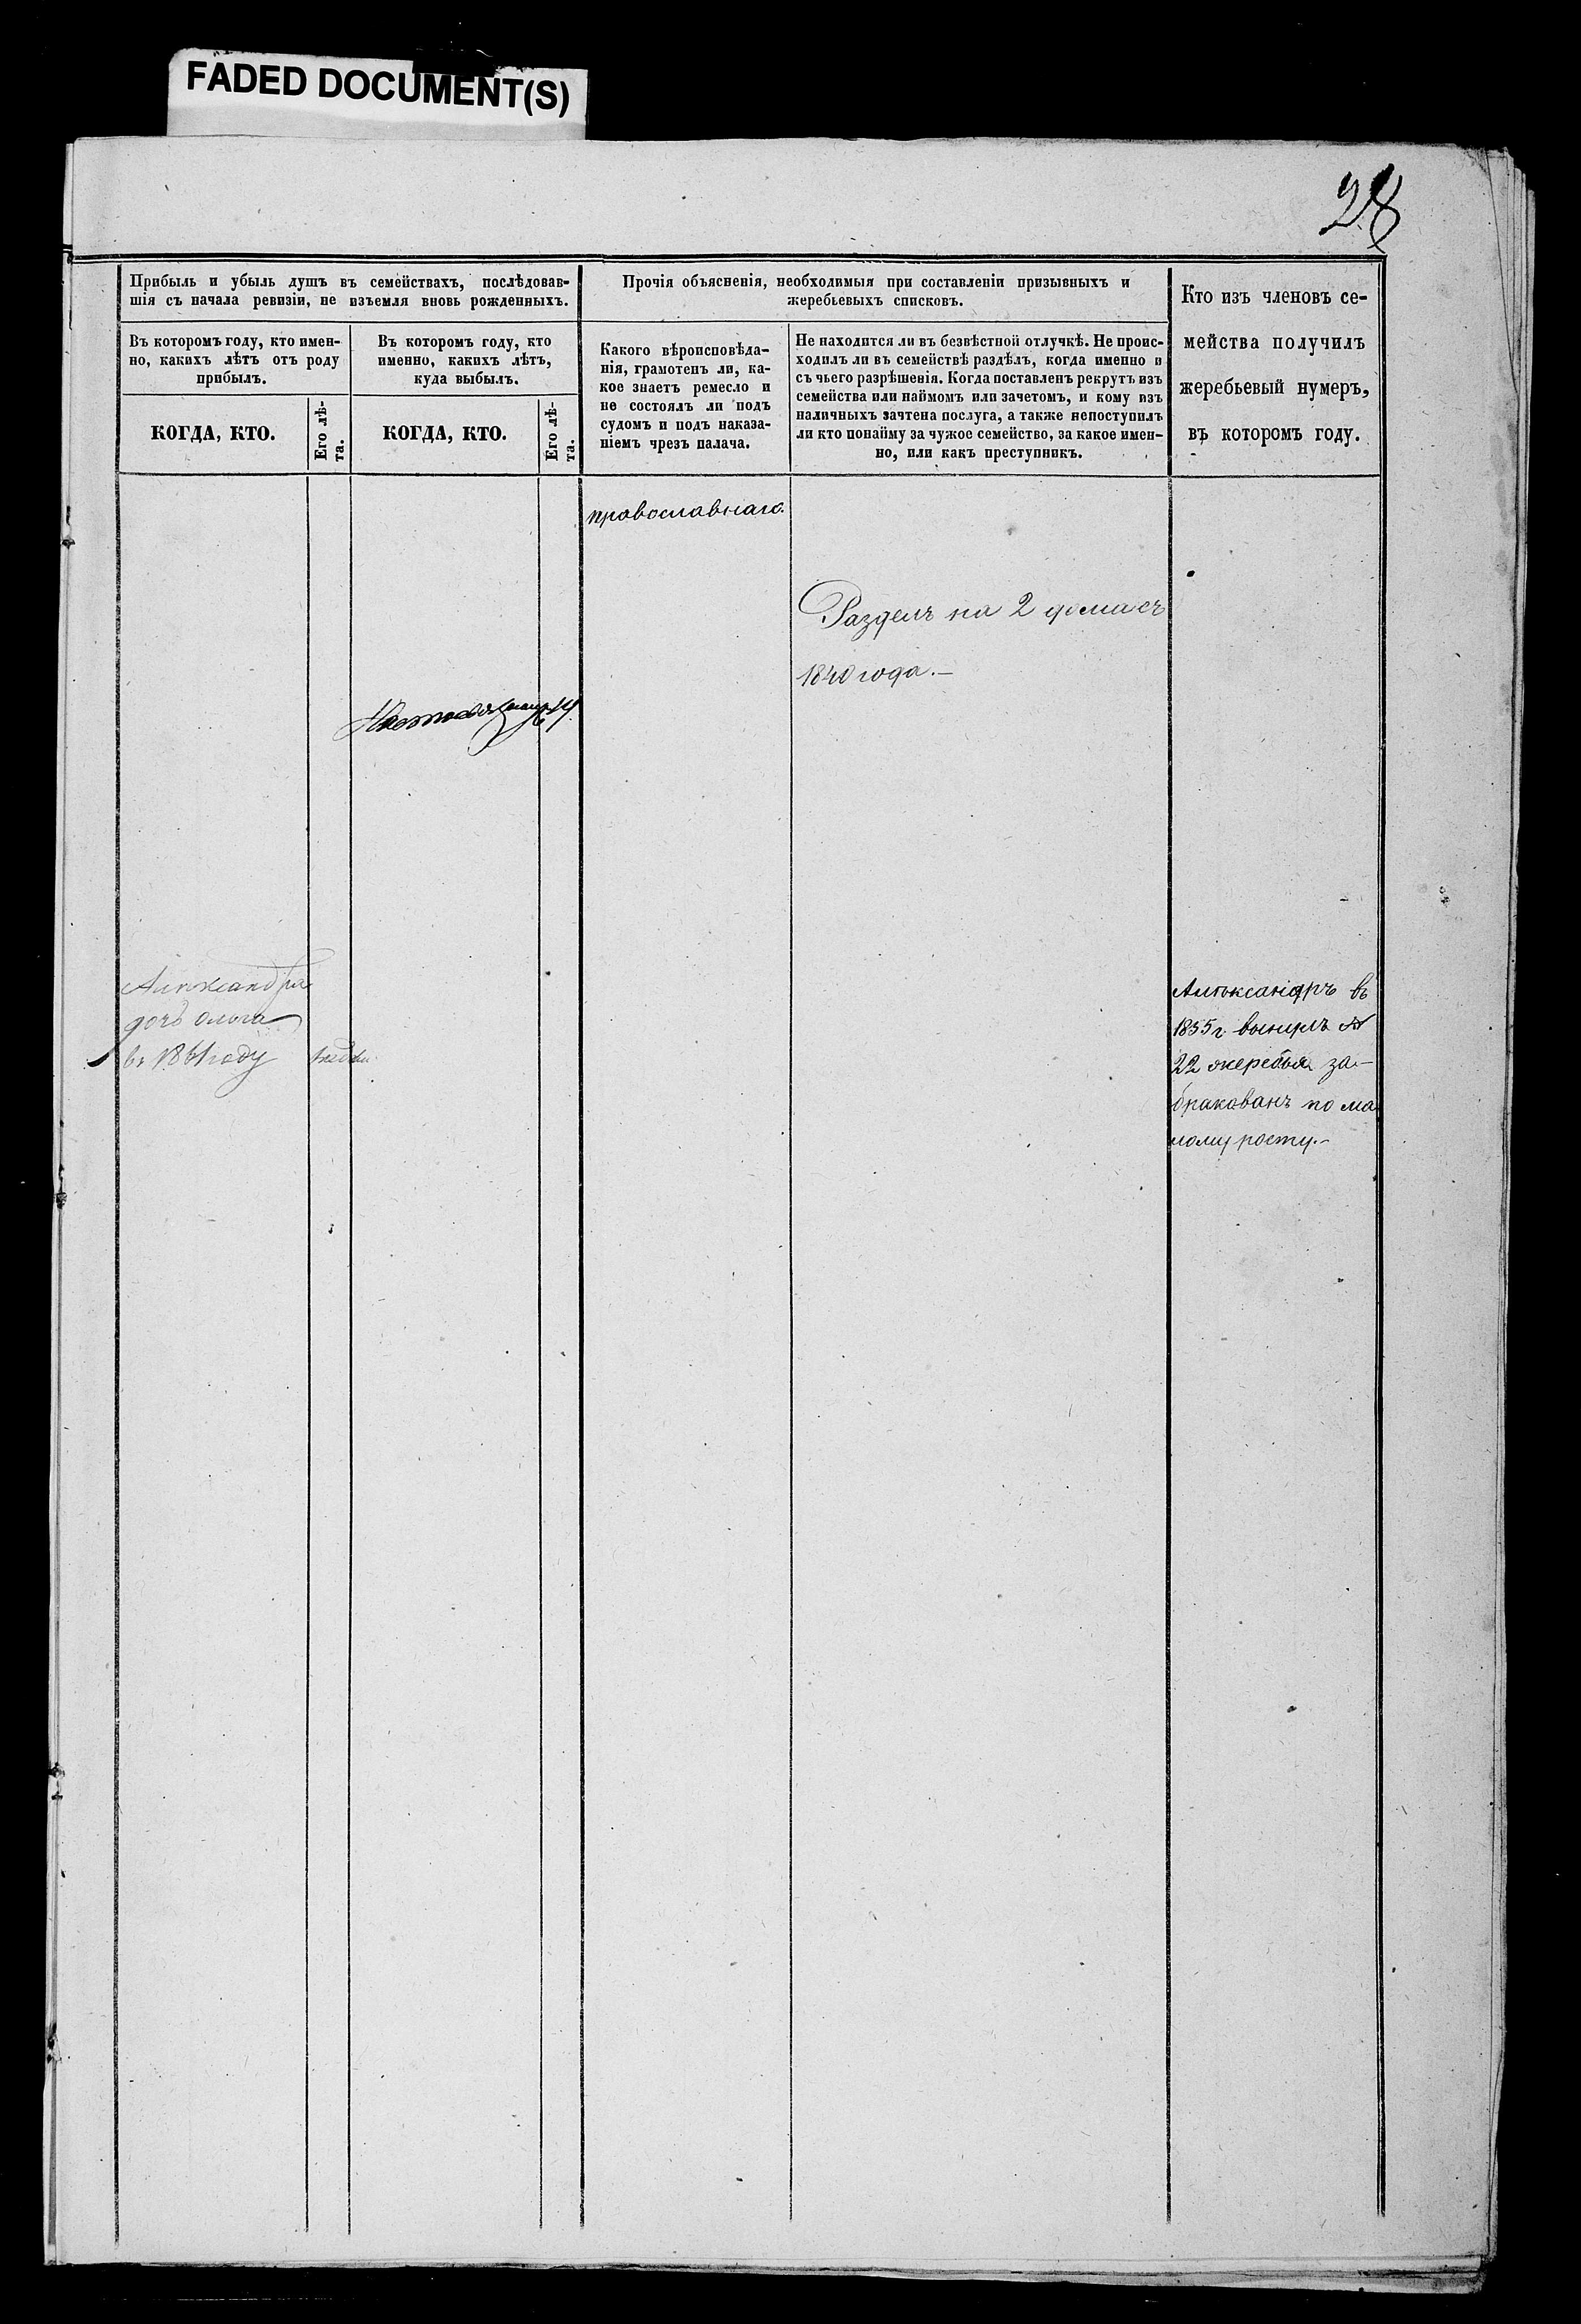 FADED DOCUMENT(S)
28
Прибыль и убыль душъ въ семействахъ, послѣдовав-
шія съ начала ревизіи, не изъемля вновь рожденныхъ.
Въ которомъ году, кто имен-
но, какихъ лѣтъ отъ роду
прибылъ.
КОГДА, КТО.
Его лѣ-
та.
Въ которомъ году, кто
именно, какихъ лѣтъ,
куда выбылъ.
КОГДА, КТО.
Его лѣ-
та.
Прочія объясненія, необходимыя при составленіи призывныхъ и
жеребьевыхъ списковъ.
Какого вѣроисповѣда-
нія, грамотенъ ли, ка-
кое знаетъ ремесло и
не состоялъ ли подъ
судомъ и подъ наказа-
ніемъ чрезъ палача.
Не находится ли въ безвѣстной отлучкѣ. Не проис-
ходилъ ли въ семействѣ раздѣлъ, когда именно и
съ чьего разрѣшенія. Когда поставленъ рекрутъ изъ
семейства или наймомъ или зачетомъ, и кому изъ
наличныхъ зачтена послуга, а также непоступилъ
ли кто понайму за чужое семейство, за какое имен-
но, или какъ преступникъ.
Кто изъ членовъ се-
мейства получилъ
жеребьевый нумеръ,
въ которомъ году.
православнаго.
Разделъ на 2 дома съ
1840 года.—
Александра
дочь Ольга
въ 1861 году
Александръ въ
1855 г. вынулъ №
22 жеребья за-
бракованъ по ма
лому росту.-